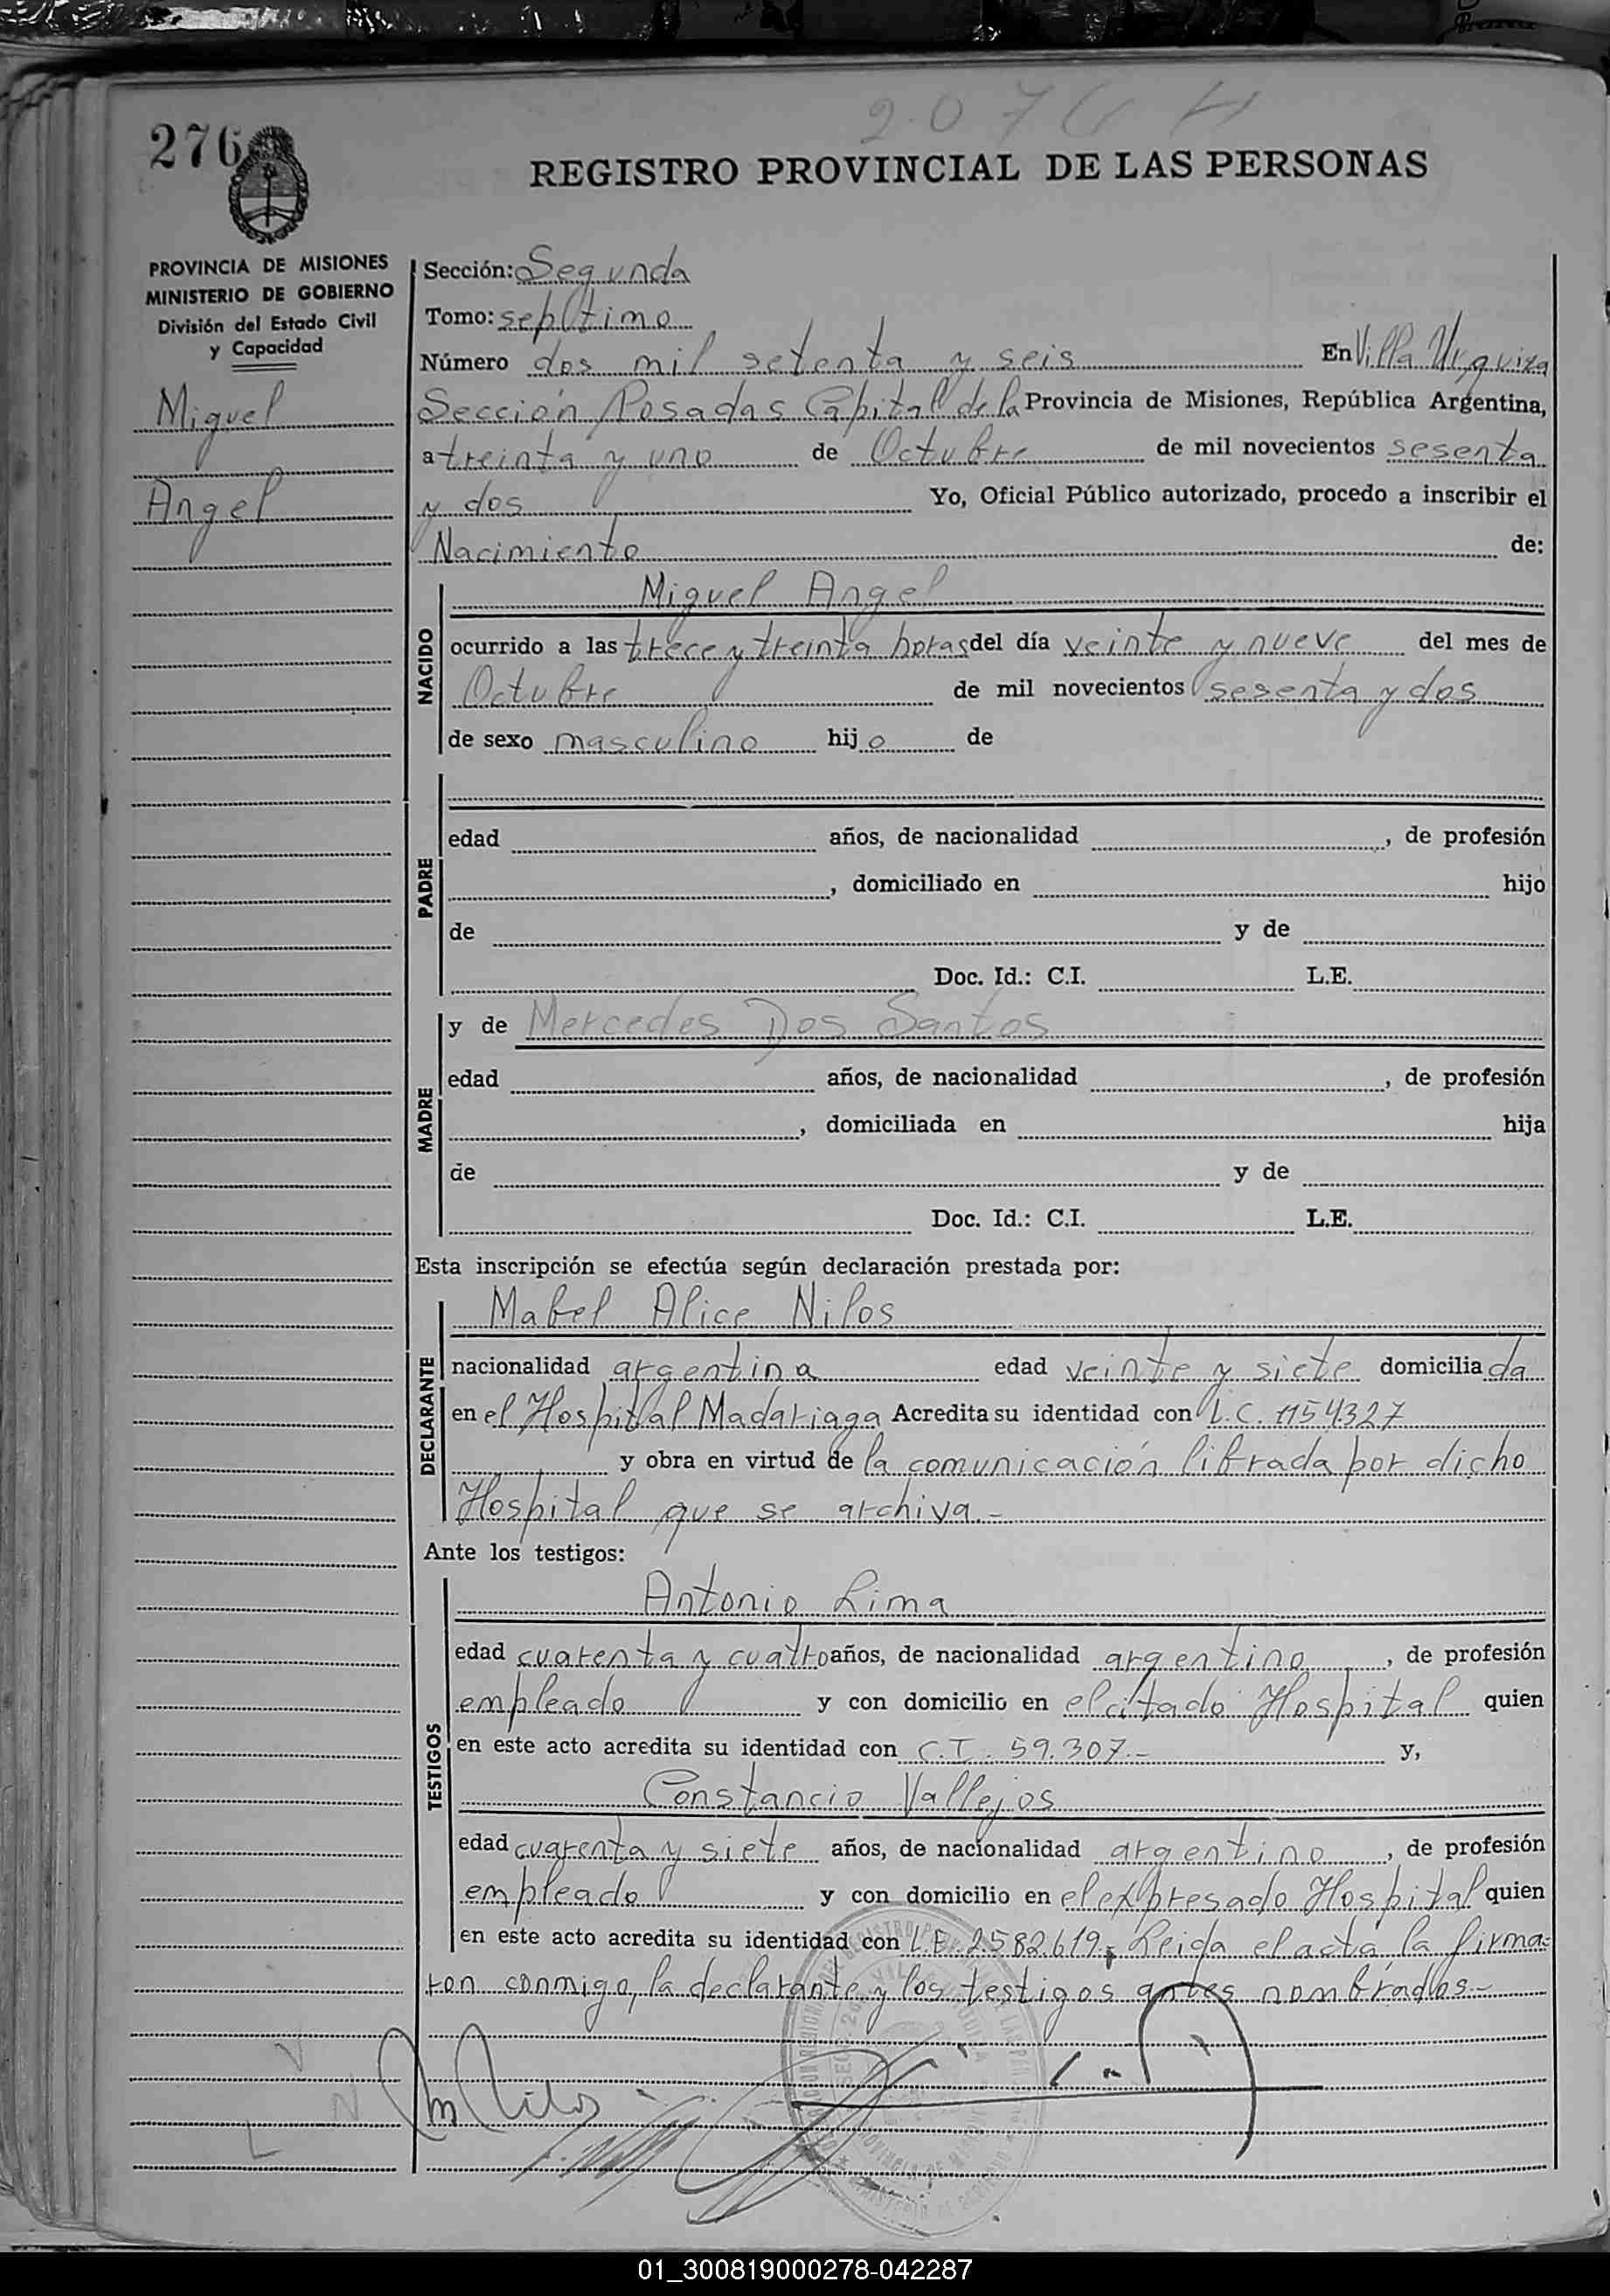 2076 H
276
REGISTRO PROVINCIAL DE LAS PERSONAS
PROVINCIA DE MISIONES
MINISTERIO DE GOBIERNO
División del Estado Civil
y Capacidad
Miguel
Angel
Sección: Segunda
Tomo: septimo
Número dos mil setenta y seis En Villa Urquiza
Sección Posadas Capital de la Provincia de Misiones, República Argentina,
a treinta y uno de Octubre de mil novecientos sesenta
y dos Yo, Oficial Público autorizado, procedo a inscribir el
Nacimiento de:
NACIDO
Miguel Angel
ocurrido a las trece y treinta horas del día veinte y nueve del mes de
Octubre de mil novecientos sesenta y dos
de sexo masculino hijo de
PADRE
edad años, de nacionalidad , de profesión
, domiciliado en hijo
de y de
Doc. Id.: C.I. L.E.
MADRE
y de Mercedes Dos Santos
edad años, de nacionalidad , de profesión
, domiciliada en hija
de y de
Doc. Id.: C.I. L.E.
Esta inscripción se efectúa según declaración prestada por:
DECLARANTE
Mabel Alice Nilos
nacionalidad argentina edad veinte y siete domiciliada
en el Hospital Madariaga Acredita su identidad con L.C. 1154327
y obra en virtud de la comunicación librada por dicho
Hospital que se archiva.-
Ante los testigos:
TESTIGOS
Antonio Lima
edad cuarenta y cuatro años, de nacionalidad argentino , de profesión
empleado y con domicilio en el citado Hospital quien
en este acto acredita su identidad con C.I. 59.307.- y,
Constancio Vallejos
edad cuarenta y siete años, de nacionalidad argentino , de profesión
empleado y con domicilio en el expresado Hospital quien
en este acto acredita su identidad con L.E. 2582619, Leida el acta la firma-
ron conmigo, la declarante y los testigos antes nombrados.-
M Nilos
01_300819000278-042287